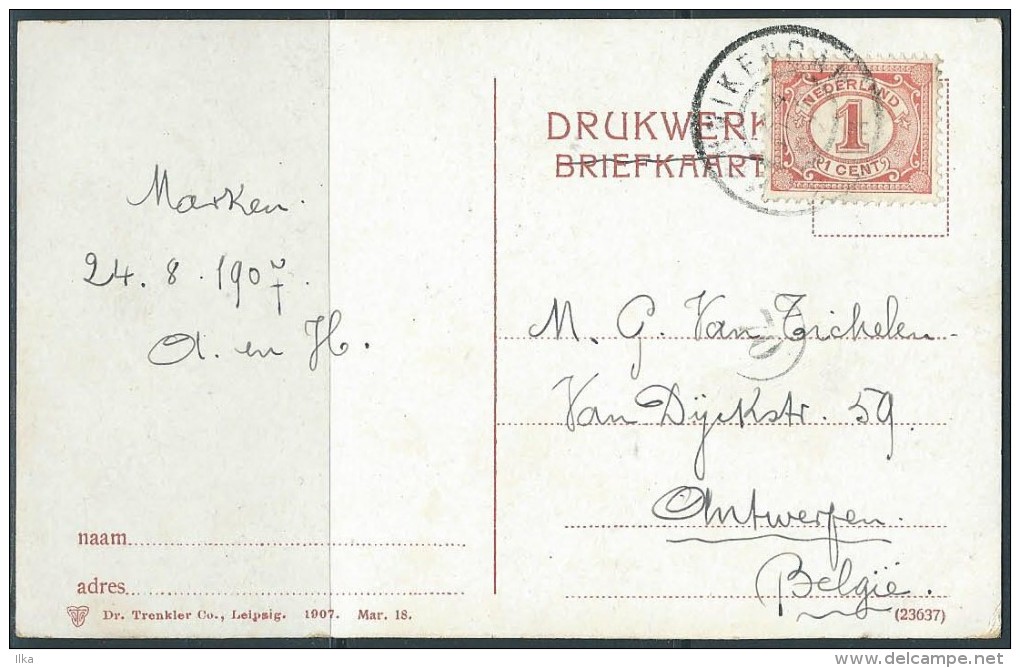 DRUKWERK
BRIEFKAART
NEDERLAND
1
1 CENT
Marken.
24. 8. 1907.
A. en H.
M. G. Van Tichelen
Van Dijckstr. 59.
Antwerpen.
België.
naam
adres
Dr. Trenkler Co., Leipsig. 1907. Mar. 18.
(23637)
Ilka
delcampe.net